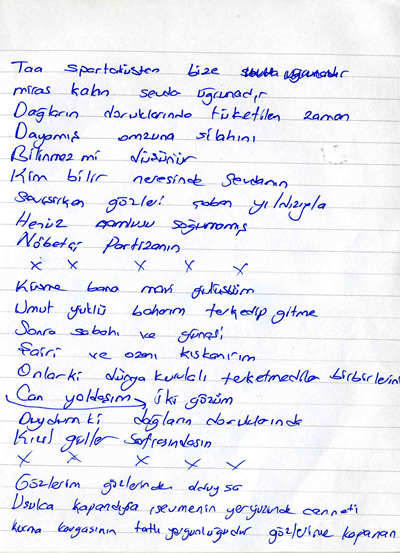 Taa spartaküsten bize
miras kalan sevda uğrunadır
Dağların doruklarında tüketilen zaman
Dayamış omzuna silahını
Bilinmez mi düşünür
Kim bilir neresinde sevdanın
gözleri çoban yıldızıyla
Henüz soğumamış
Nöbetçi Partizanın
x x x x x
Küsme bana mavi gülüşlüm
Umut yüklü baharım terkedip gitme
Sonra sabahı ve güneşi
Şairi ve ozanı kıskanırım
Onlarki dünya kurulalı terketmediler birbirlerini
Can yoldaşım iki gözüm
Duydum ki dağların doruklarında
Kızıl güller sofrasındasın
x x x x x
Gözlerim gözlerinde
Usulca kapandıysa sevmenin yeryüzünde cenneti
kurma kavgasının tatlı yorgunluğudur gözlerime kapanan